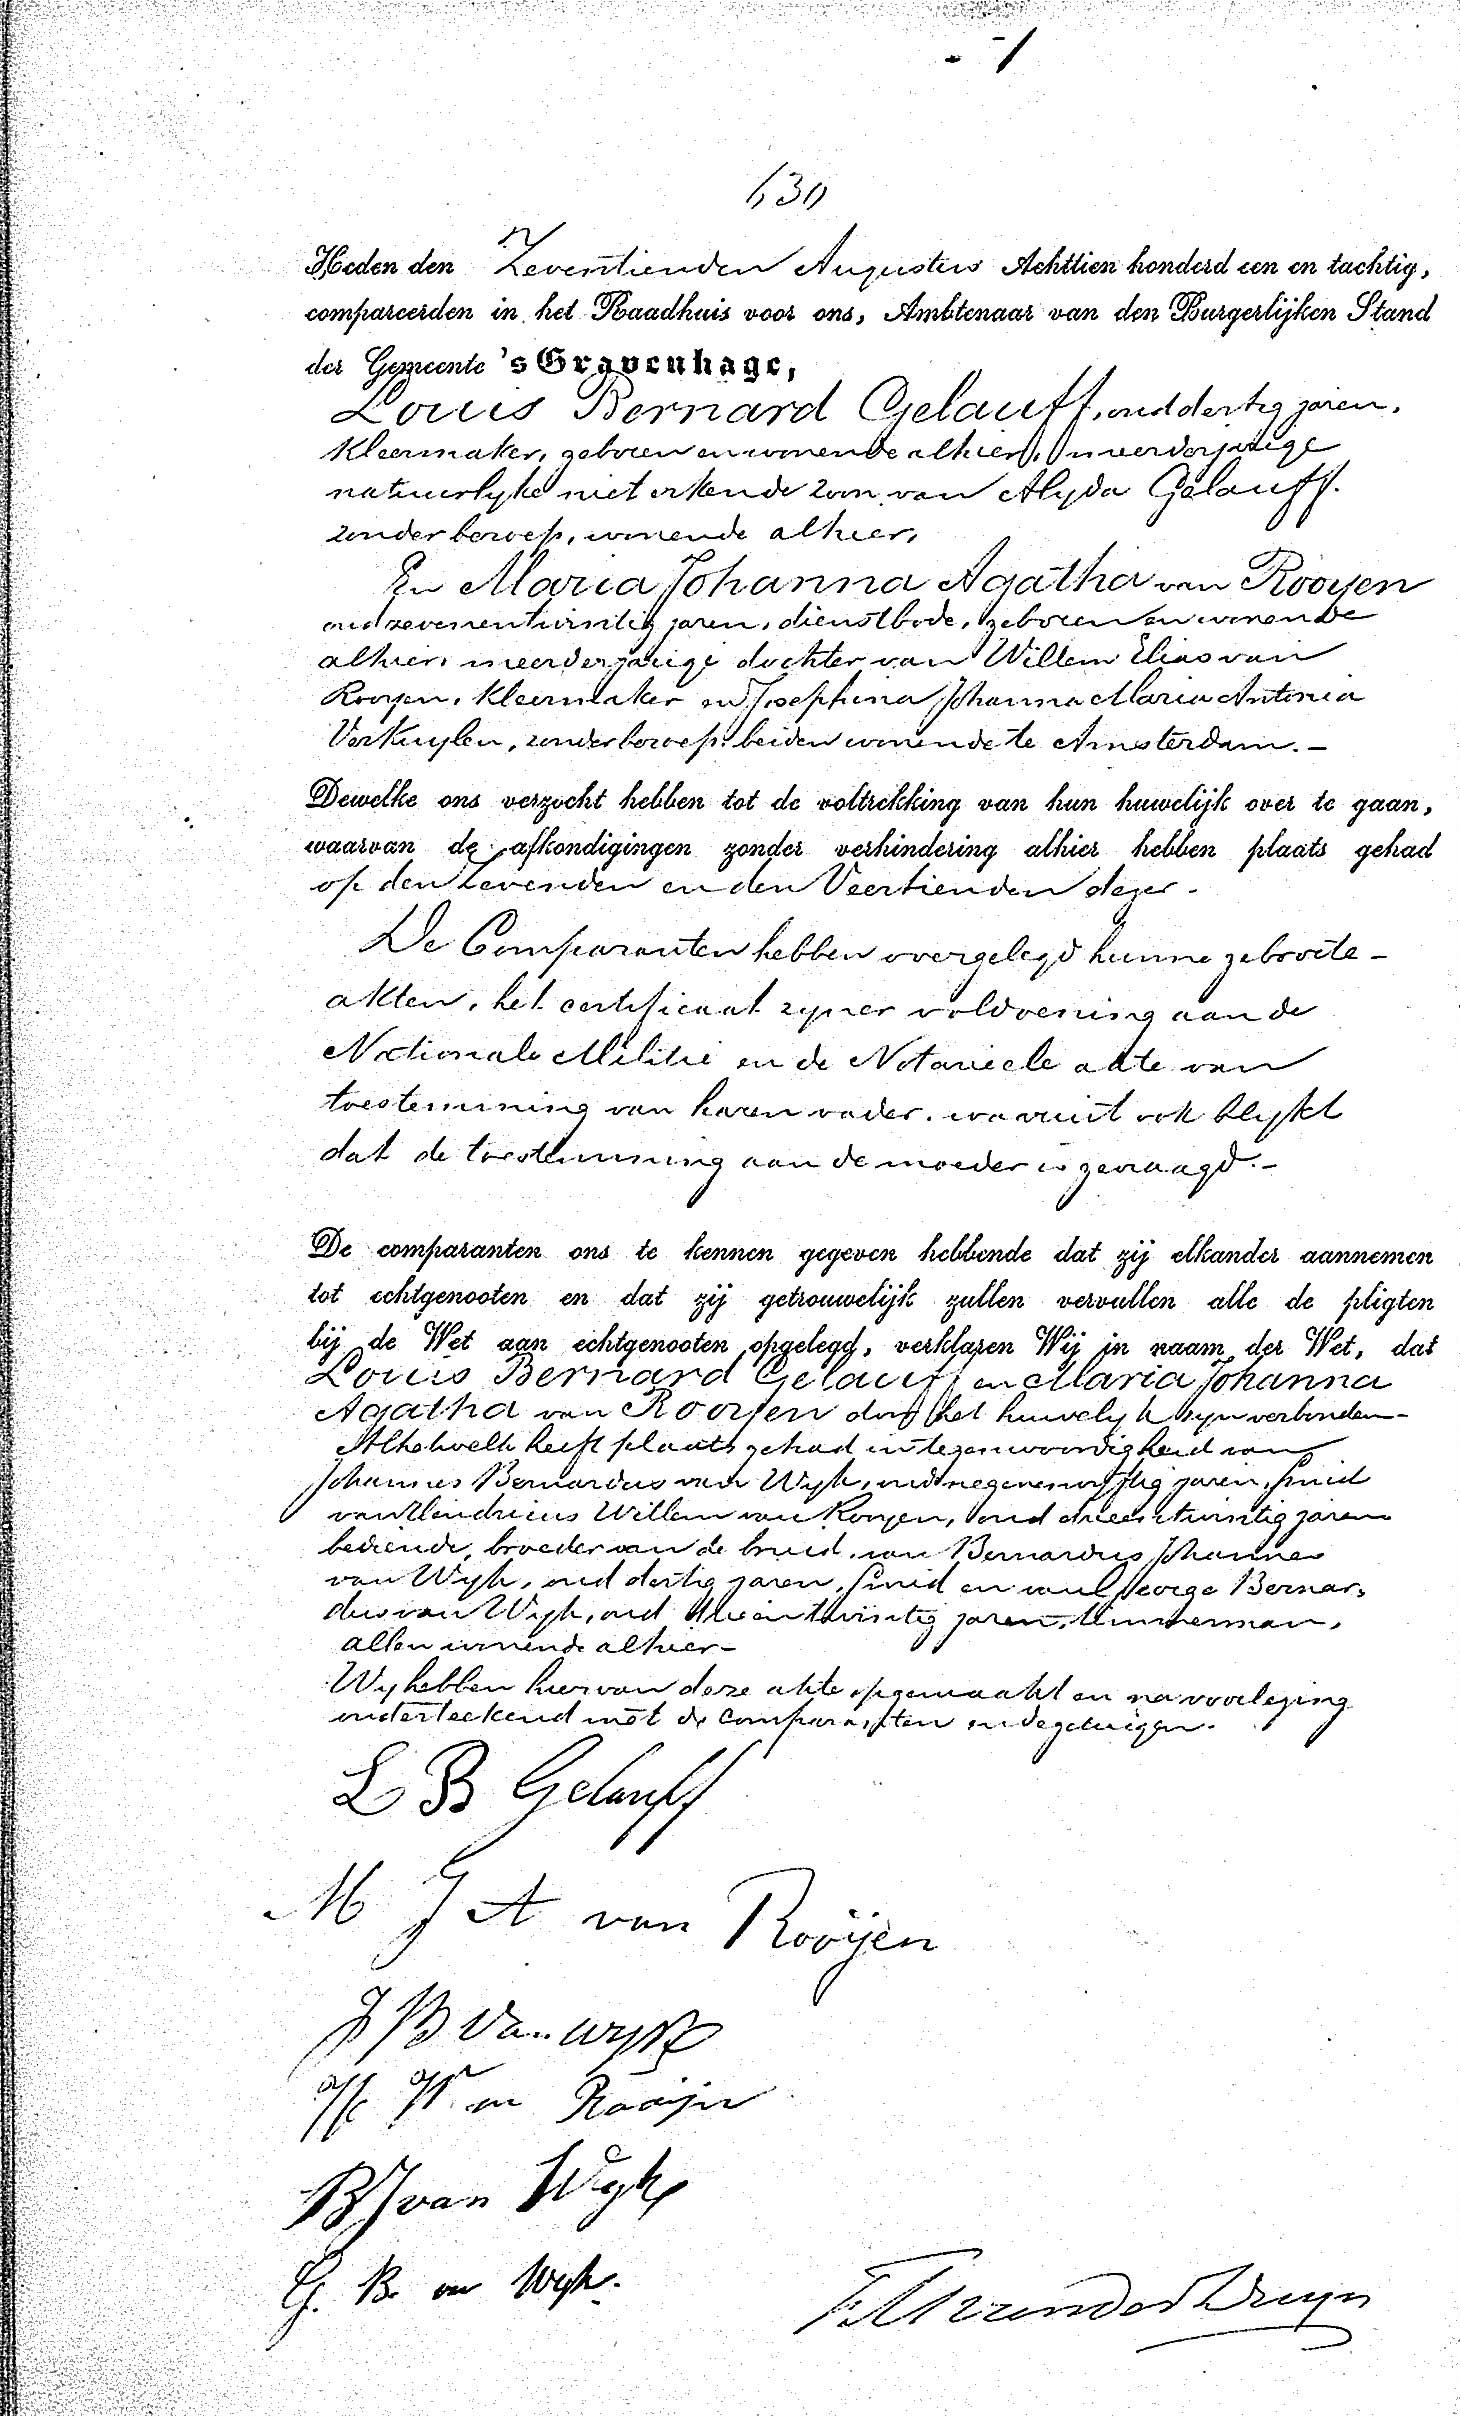 630
Heden den Zeventienden Augustus Achttien honderd een en tachtig,
compareerden in het Raadhuis voor ons, Ambtenaar van den Burgerlijken Stand
der Gemeente 's Gravenhage,
Louis Bernard Gelauff, oud dertig jaren,
kleermaker, geboren en wonende alhier, meerderjarige
natuurlyke niet erkende zoon van Alyda Gelauff.
zonder beroep, wonende alhier,
En Maria Johanna Agatha van Rooyen
oud zevenentwintig jaren, dienstbode, geboren en wonende
alhier, meerderjarige dochter van Willem Elias van
Rooyen, kleermaker en Josephina Johanna Maria Antonia
Verkuylen, zonder beroep, beiden wonende te Amsterdam.–
Dewelke ons verzocht hebben tot de voltrekking van hun huwelijk over te gaan,
waarvan de afkondigingen zonder verhindering alhier hebben plaats gehad
op den Zevenden en den Veertienden dezer.
De Comparanten hebben overgelegd hunne geboorte–
akten, het certificaat zyner voldoening aan de
Nationale Militie en de Notarieele akte van
toestemming van haren vader, waaruit ook blykt
dat de toestemming aan de moeder is gevraagd.–
De comparanten ons te kennen gegeven hebbende dat zij elkander aannemen
tot echtgenooten en dat zij getrouwelijk zullen vervullen alle de pligten
bij de Wet aan echtgenooten opgelegd, verklaren Wij in naam der Wet, dat
Louis Bernard Gelauff en Maria Johanna
Agatha van Rooyen door het huwelyk zyn verbonden–
Alhetwelk heeft plaats gehad in tegenwoordigheid van
Johannes Bernardus van Wyk, oud negenenvyftig jaren, smid
van Hendricus Willem van Rooyen, oud drieentwintig jaren
bediende, broeder van de bruid, van Bernardus Johannes
van Wyk, oud dertig jaren, smid en van George Bernar,
dus van Wyk, oud drieentwintig jaren, timmerman,
allen wonende alhier–
Wy hebben hiervan deze akte opgemaakt en na voorlezing
onderteekend met de comparanten en de getuigen.
L B Gelauff
M J A van Rooijen
J B van Wyk
H W van Rooijen
B J van Wyk
G. B. van Wyk.